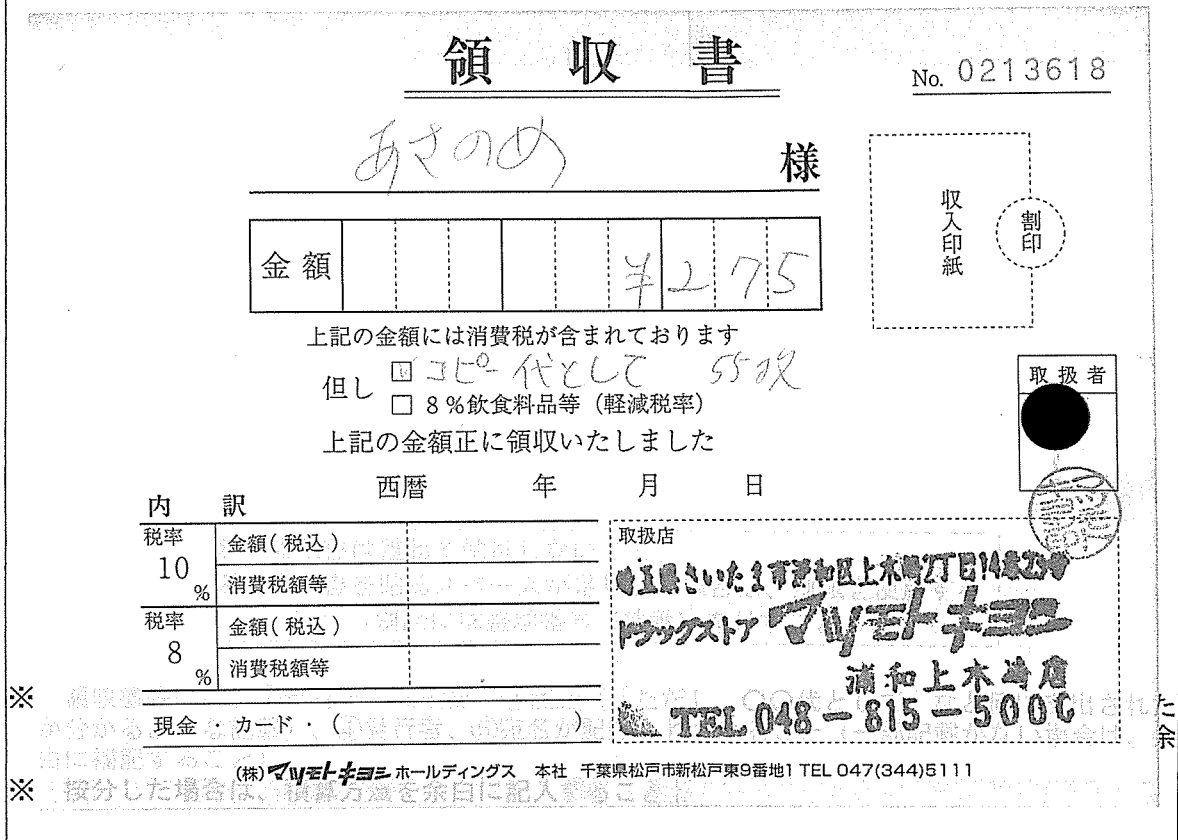 領収書
No. 0213618
あさのめ 様
収入印紙
割印
金額 ¥275
上記の金額には消費税が含まれております
但し コピー代として 55枚
□ 8%飲食料品等（軽減税率）
上記の金額正に領収いたしました
取扱者
西暦 年 月 日
内 訳
税率 10 % 金額(税込)
消費税額等
税率 8 % 金額(税込)
消費税額等
現金・カード・( )
取扱店
埼玉県さいたま市浦和区上木崎2丁目14番23号
ドラッグストア マツモトキヨシ
浦和上木崎店
TEL 048-815-5000
(株)マツモトキヨシ ホールディングス 本社 千葉県松戸市新松戸東9番地1 TEL 047(344)5111
※
た
余
※ 按分した場合は、積算方法を余白に記入すること